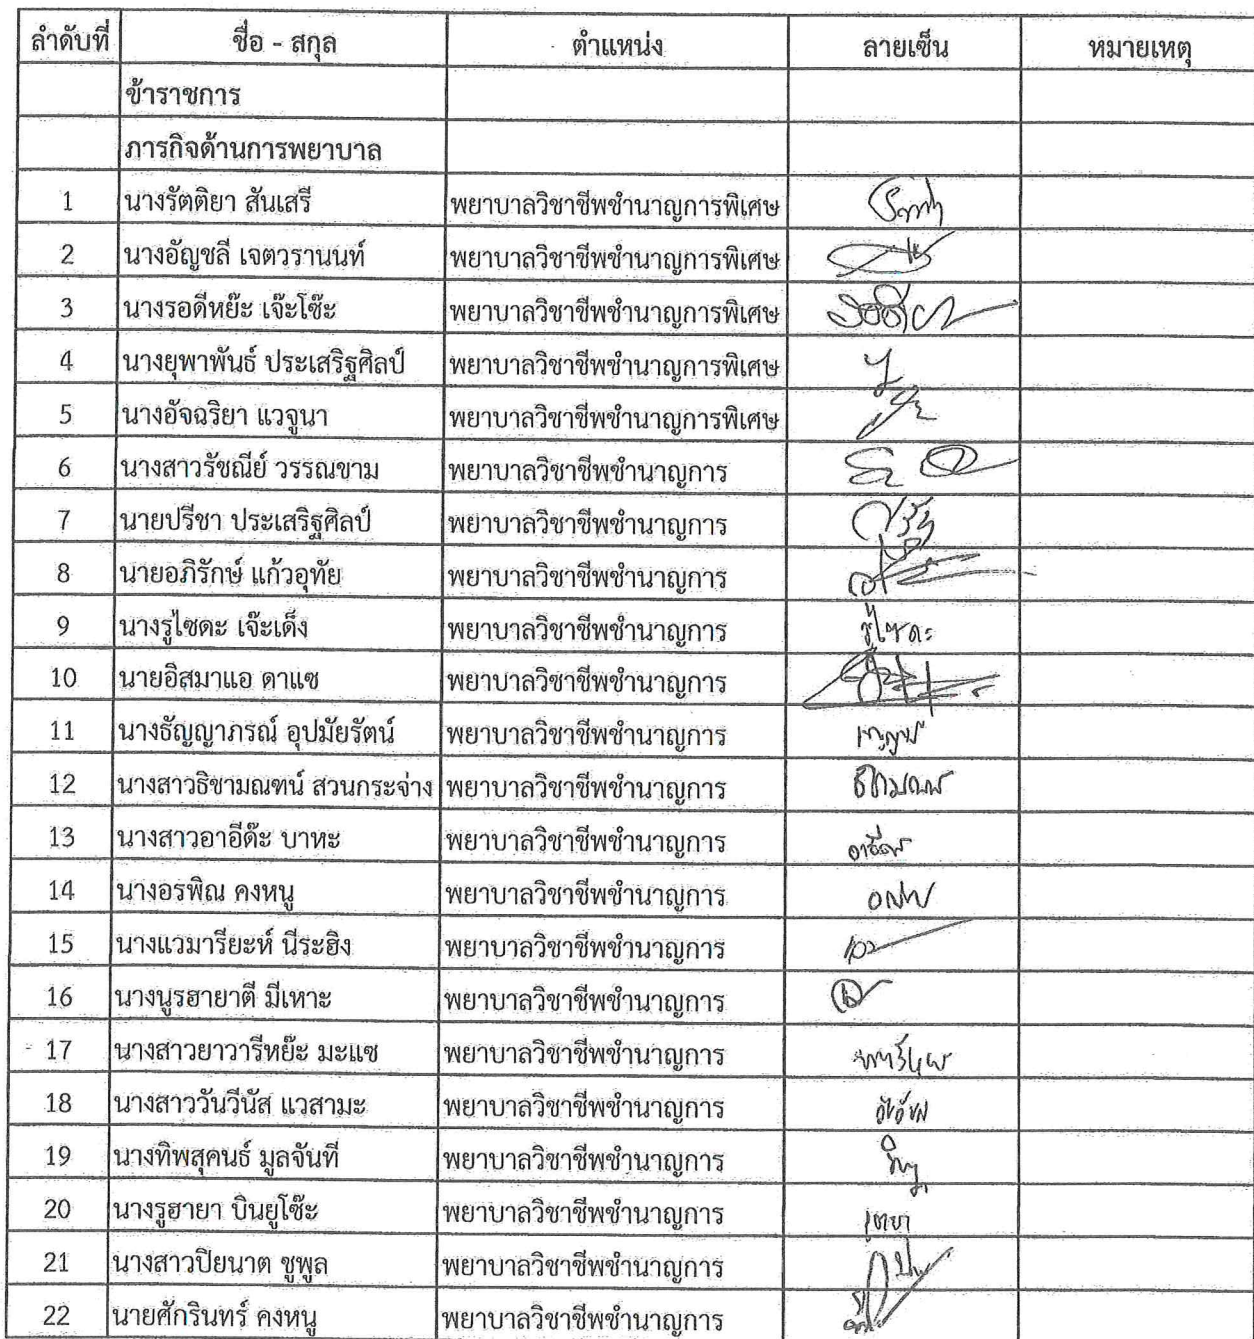 ลำดับที่ ชื่อ - สกุล ตำแหน่ง ลายเซ็น หมายเหตุ
ข้าราชการ
ภารกิจด้านการพยาบาล
1 นางรัตติยา สันเสรี พยาบาลวิชาชีพชำนาญการพิเศษ
2 นางอัญชลี เจตวรานนท์ พยาบาลวิชาชีพชำนาญการพิเศษ
3 นางรอดีหย๊ะ เจ๊ะโซ๊ะ พยาบาลวิชาชีพชำนาญการพิเศษ
4 นางยุพาพันธ์ ประเสริฐศิลป์ พยาบาลวิชาชีพชำนาญการพิเศษ
5 นางอัจฉริยา แวจูนา พยาบาลวิชาชีพชำนาญการพิเศษ
6 นางสาวรัชณีย์ วรรณขาม พยาบาลวิชาชีพชำนาญการ
7 นายปรีชา ประเสริฐศิลป์ พยาบาลวิชาชีพชำนาญการ
8 นายอภิรักษ์ แก้วอุทัย พยาบาลวิชาชีพชำนาญการ
9 นางรูไซดะ เจ๊ะเด็ง พยาบาลวิชาชีพชำนาญการ รูไซดะ
10 นายอิสมาแอ ดาแซ พยาบาลวิชาชีพชำนาญการ
11 นางธัญญาภรณ์ อุปมัยรัตน์ พยาบาลวิชาชีพชำนาญการ
12 นางสาวธิชามณฑน์ สวนกระจ่าง พยาบาลวิชาชีพชำนาญการ
13 นางสาวอาอีด๊ะ บาหะ พยาบาลวิชาชีพชำนาญการ
14 นางอรพิณ คงหนู พยาบาลวิชาชีพชำนาญการ
15 นางแวมารียะห์ นีระฮิง พยาบาลวิชาชีพชำนาญการ
16 นางนูรฮายาตี มีเหาะ พยาบาลวิชาชีพชำนาญการ
17 นางสาวยาวารีหย๊ะ มะแซ พยาบาลวิชาชีพชำนาญการ
18 นางสาววันวีนัส แวสามะ พยาบาลวิชาชีพชำนาญการ
19 นางทิพสุคนธ์ มูลจันที พยาบาลวิชาชีพชำนาญการ
20 นางรูฮายา บินยูโซ๊ะ พยาบาลวิชาชีพชำนาญการ
21 นางสาวปิยนาต ชูพูล พยาบาลวิชาชีพชำนาญการ
22 นายศักรินทร์ คงหนู พยาบาลวิชาชีพชำนาญการ